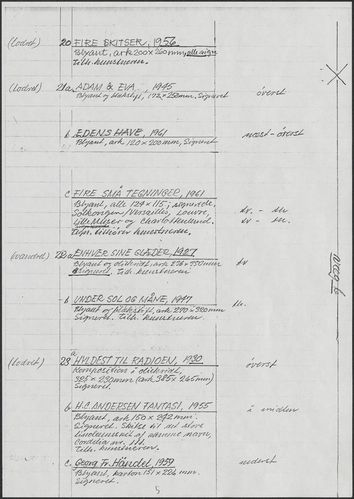 (Lodret) 20 FIRE SKITSER, 1956
Blyant, ark 200 x 260 mm, alle sign.
Tilh. kunstneren.
(Lodret) 21a ADAM & EVA, 1945
Blyant og blækstift, 192 x 252 mm, Signeret øverst
b EDENS HAVE, 1961
Blyant, ark 120 x 200 mm, Signeret næst-øverst
c FIRE SMÅ TEGNINGER, 1961
Blyant, alle 124 x 115; signerede.
Solkongen/Versailles, Louvre, tv. - th.
Lille Mellem og Charlottenlund. tv - th.
Tegn. tilhører kunstneren.
(vandret) 22a ENHVER SINE GLÆDER, 1927
Blyant og
Signeret. Tilh. kunstneren tv
b UNDER SOL OG MÅNE, 1947
Blyant og blækstift, ark 270 x 380 mm th.
Signeret. Tilh. kunstneren.
(Lodret) 23a HYLDEST TIL RADIOEN, 1930
Komposition i øverst
325 x 230 mm (ark 385 x 265 mm)
Signeret.
b H.C. ANDERSEN FANTASI, 1955
Blyant, ark 150 x 292 mm. i midten
Signeret. Skitse til det store
af samme navn,
Tilh. kunstneren.
c. Georg Fr. Händel, 1959 nederst
Blyant, karton 151 x 226 mm.
Signeret.
5